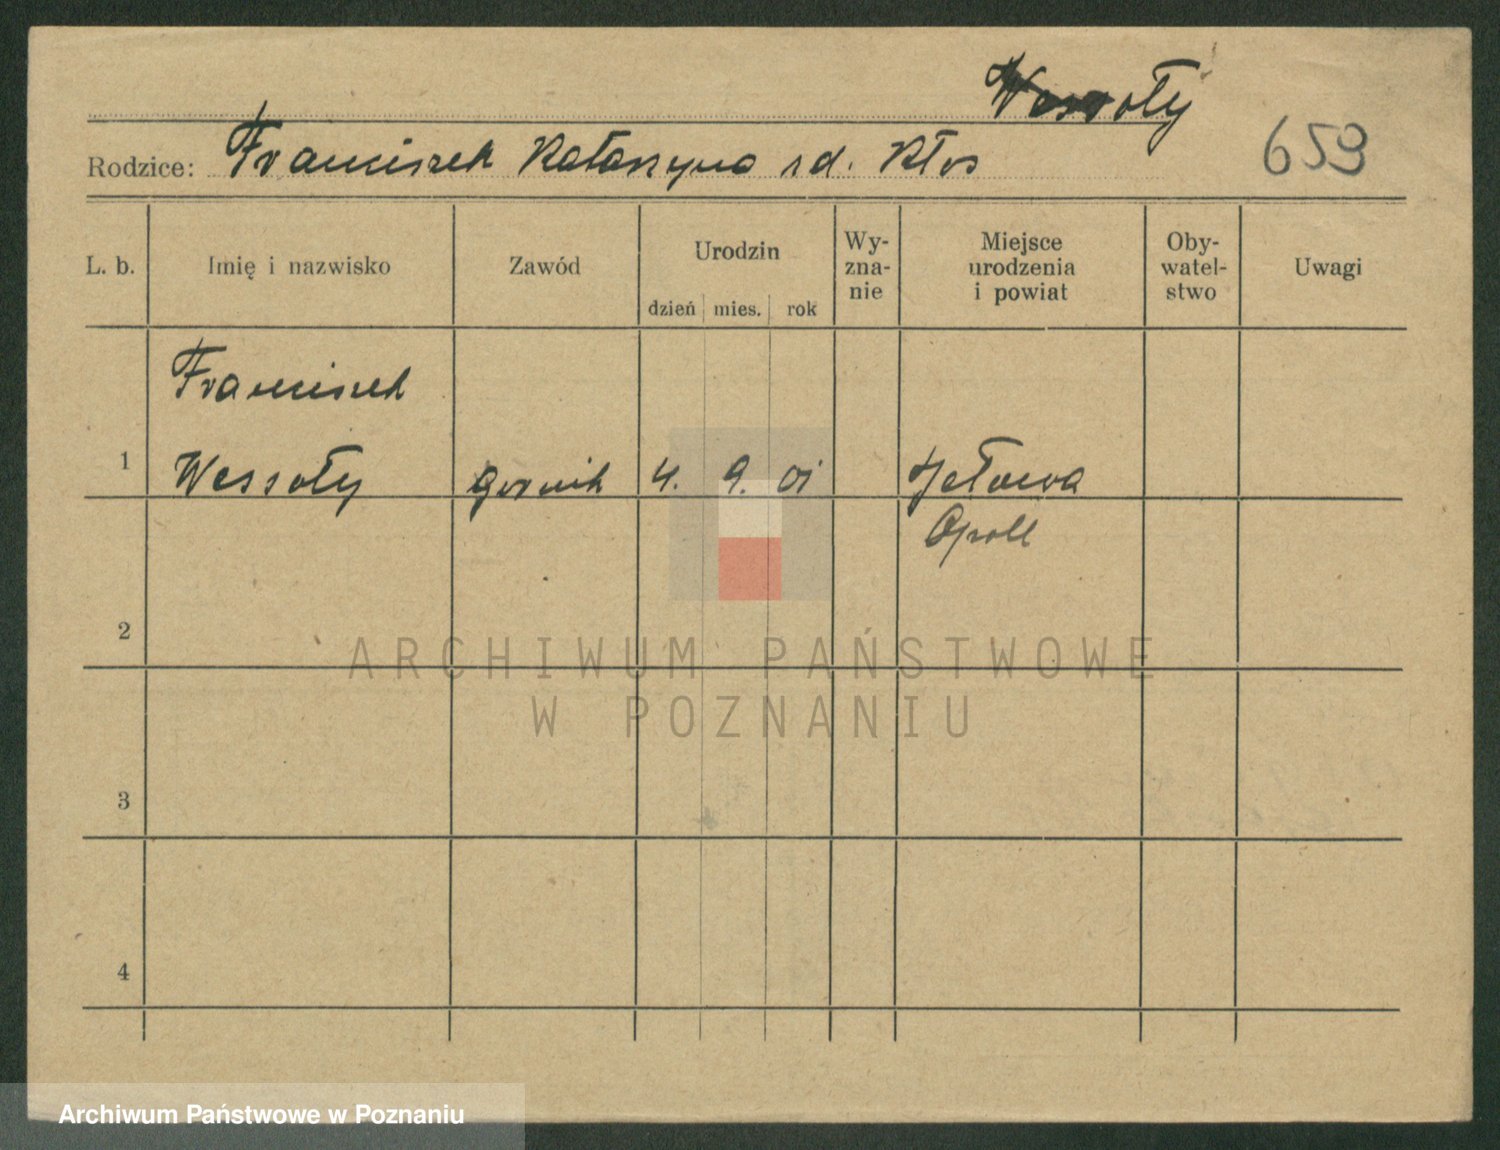 Wessoły
Rodzice: Franciszek Katarzyna zd. Kłos
659
L. b.
Imię i nazwisko
Zawód
Urodzin
dzień mies. rok
Wy-
zna-
nie
Miejsce
urodzenia
i powiat
Oby-
watel-
stwo
Uwagi
Franciszek
1 Wessoły górnik 4. 9. 01 Jełowa
Opoll
2
ARCHIWUM PAŃSTWOWE
W POZNANIU
3
4
Archiwum Państwowe w Poznaniu